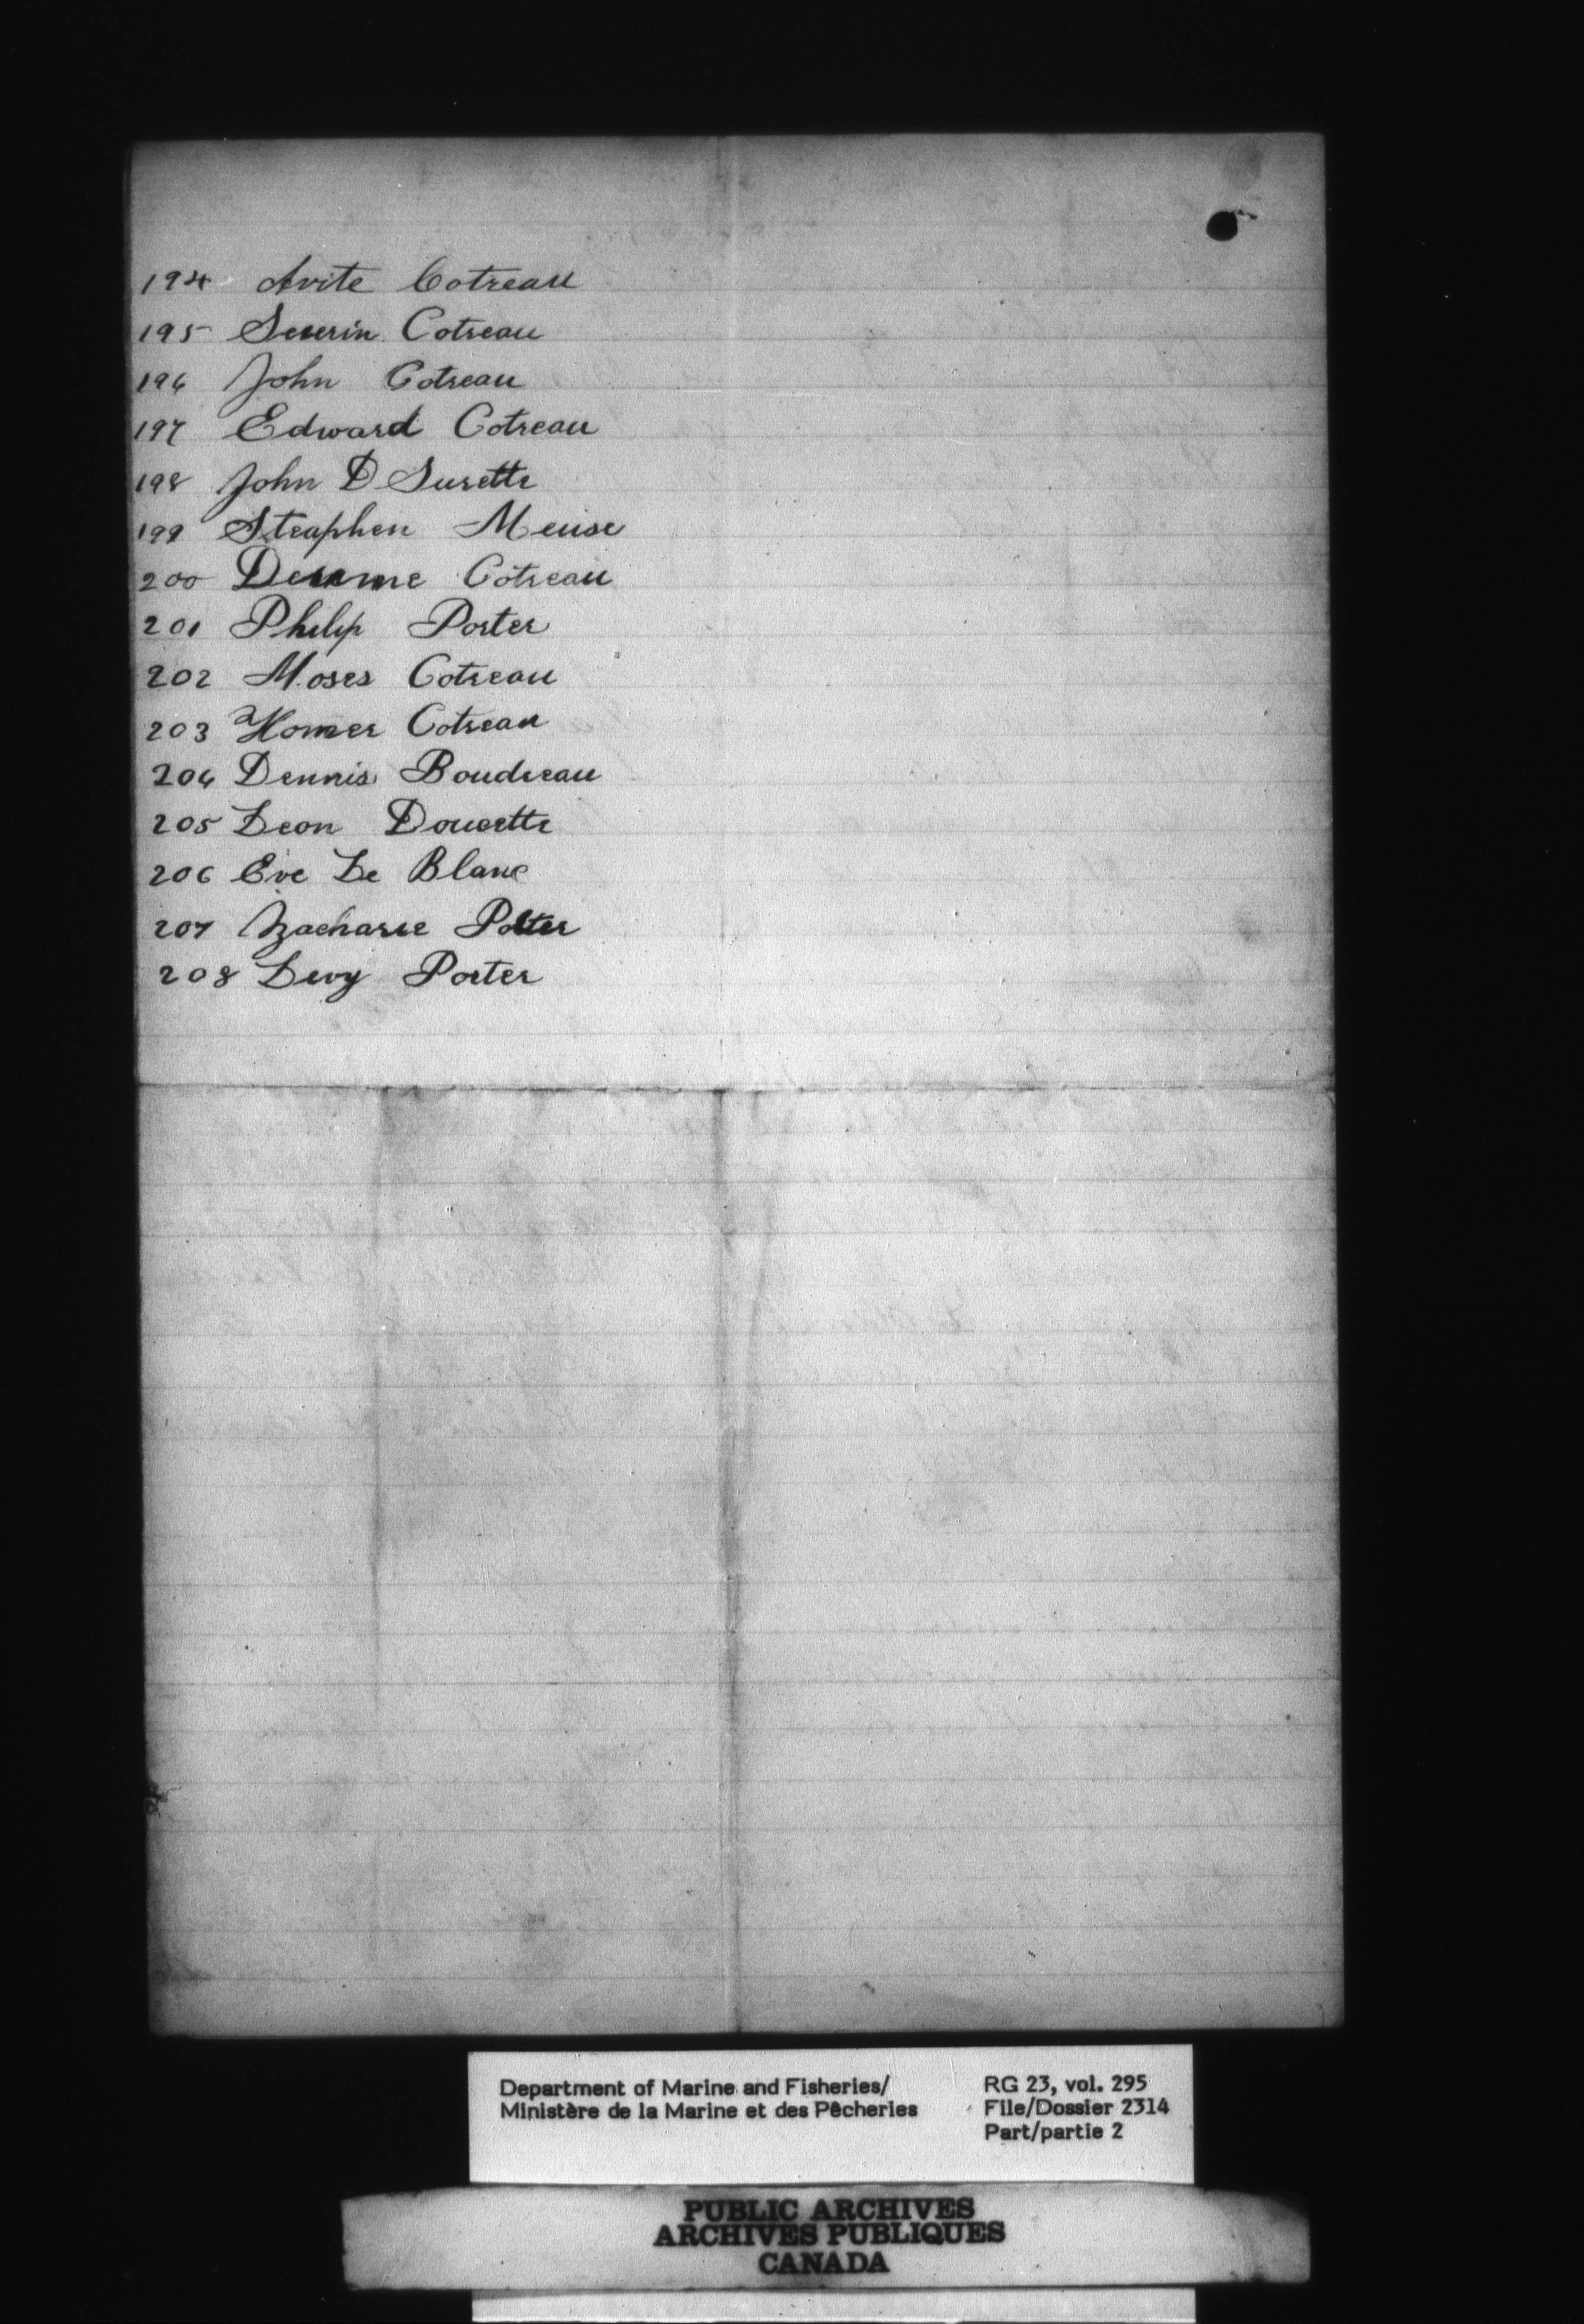 194 Avite Cotreau
195 Severin Cotreau
196 John Cotreau
197 Edward Cotreau
198 John D Surette
199 Steaphen Meuse
200 Cotreau
201 Philip Porter
202 Moses Cotreau
203 Homer Cotreau
204 Dennis Boudreau
205 Leon Doucette
206 Eve Le Blanc
207 Zacharie Potter
208 Levy Porter
Department of Marine and Fisheries/
Ministère de la Marine et des Pêcheries
RG 23, vol. 295
File/Dossier 2314
Part/partie 2
PUBLIC ARCHIVES
ARCHIVES PUBLIQUES
CANADA